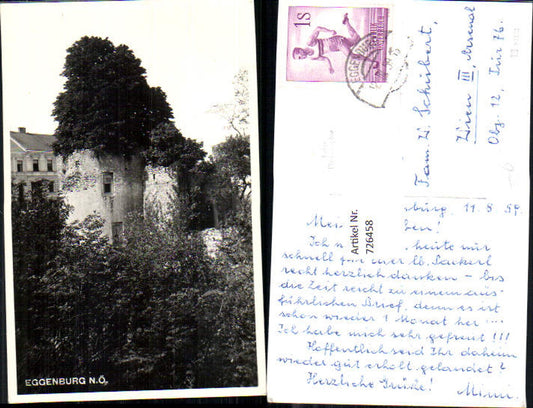 EGGENBURG N.Ö.
1 S
EGGENBURG
Fam. W. Schubert,
Wien III, Arsenal
Obj. 12, Tür 76.
Artikel Nr.
726458
burg, 11. 8. 59.
Mei ben!
Ich heute nur
schnell für euer lb. Packerl
recht herzlich danken – bis
die Zeit reicht zu einem aus-
führlichen Brief, denn es ist
schon wieder 1 Monat her ...
Ich habe mich sehr gefreut !!!
Hoffentlich seid Ihr daheim
wieder gut erholt gelandet?
Herzliche Grüße! Mimi.